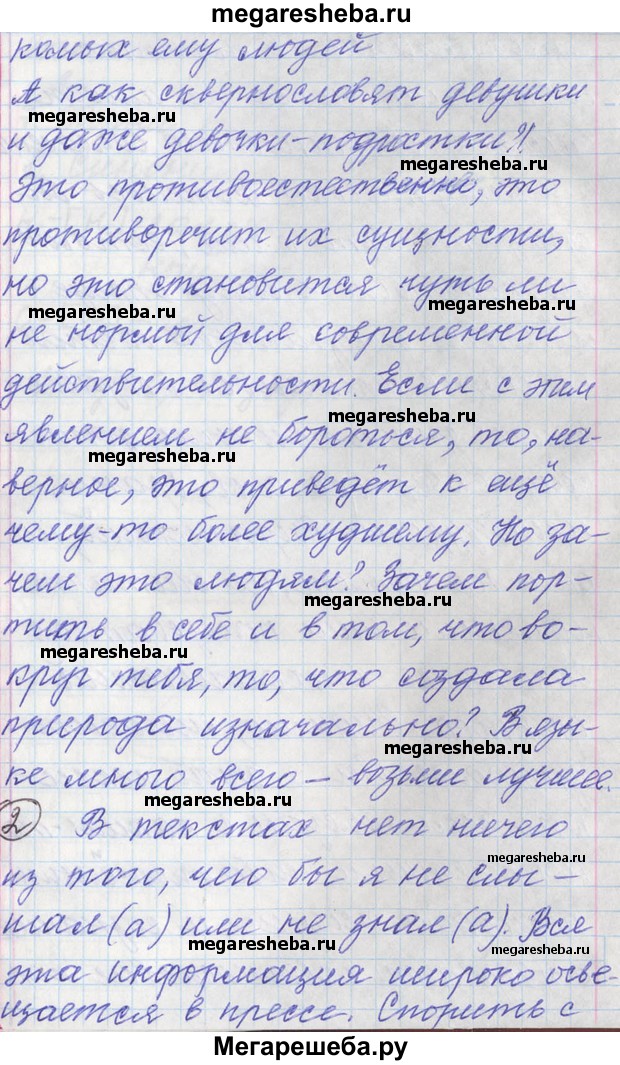 megaresheba.ru
комых ему людей
А как сквернословят девушки
megaresheba.ru
и даже девочки-подростки?!
megaresheba.ru
Это противоестественно, это
противоречит их сущности,
но это становится чуть ли
megaresheba.ru
megaresheba.ru
не нормой для современной
действительности. Если с этим
megaresheba.ru
явлением не бороться, то, на-
megaresheba.ru
верное, это приведёт к ещё
чему-то более худшему. Но за-
чем это людям? Зачем пор-
megaresheba.ru
тить в себе и в том, что во-
megaresheba.ru
круг тебя, то, что создала
природа изначально? В язы-
megaresheba.ru
ке много всего – возьми лучшее.
megaresheba.ru
2 В текстах нет ничего
megaresheba.ru
из того, чего бы я не слы-
шал(а) или не знал(а). Вся
megaresheba.ru
megaresheba.ru
эта информация широко осве-
щается в прессе. Спорить с
Мегарешеба.ру